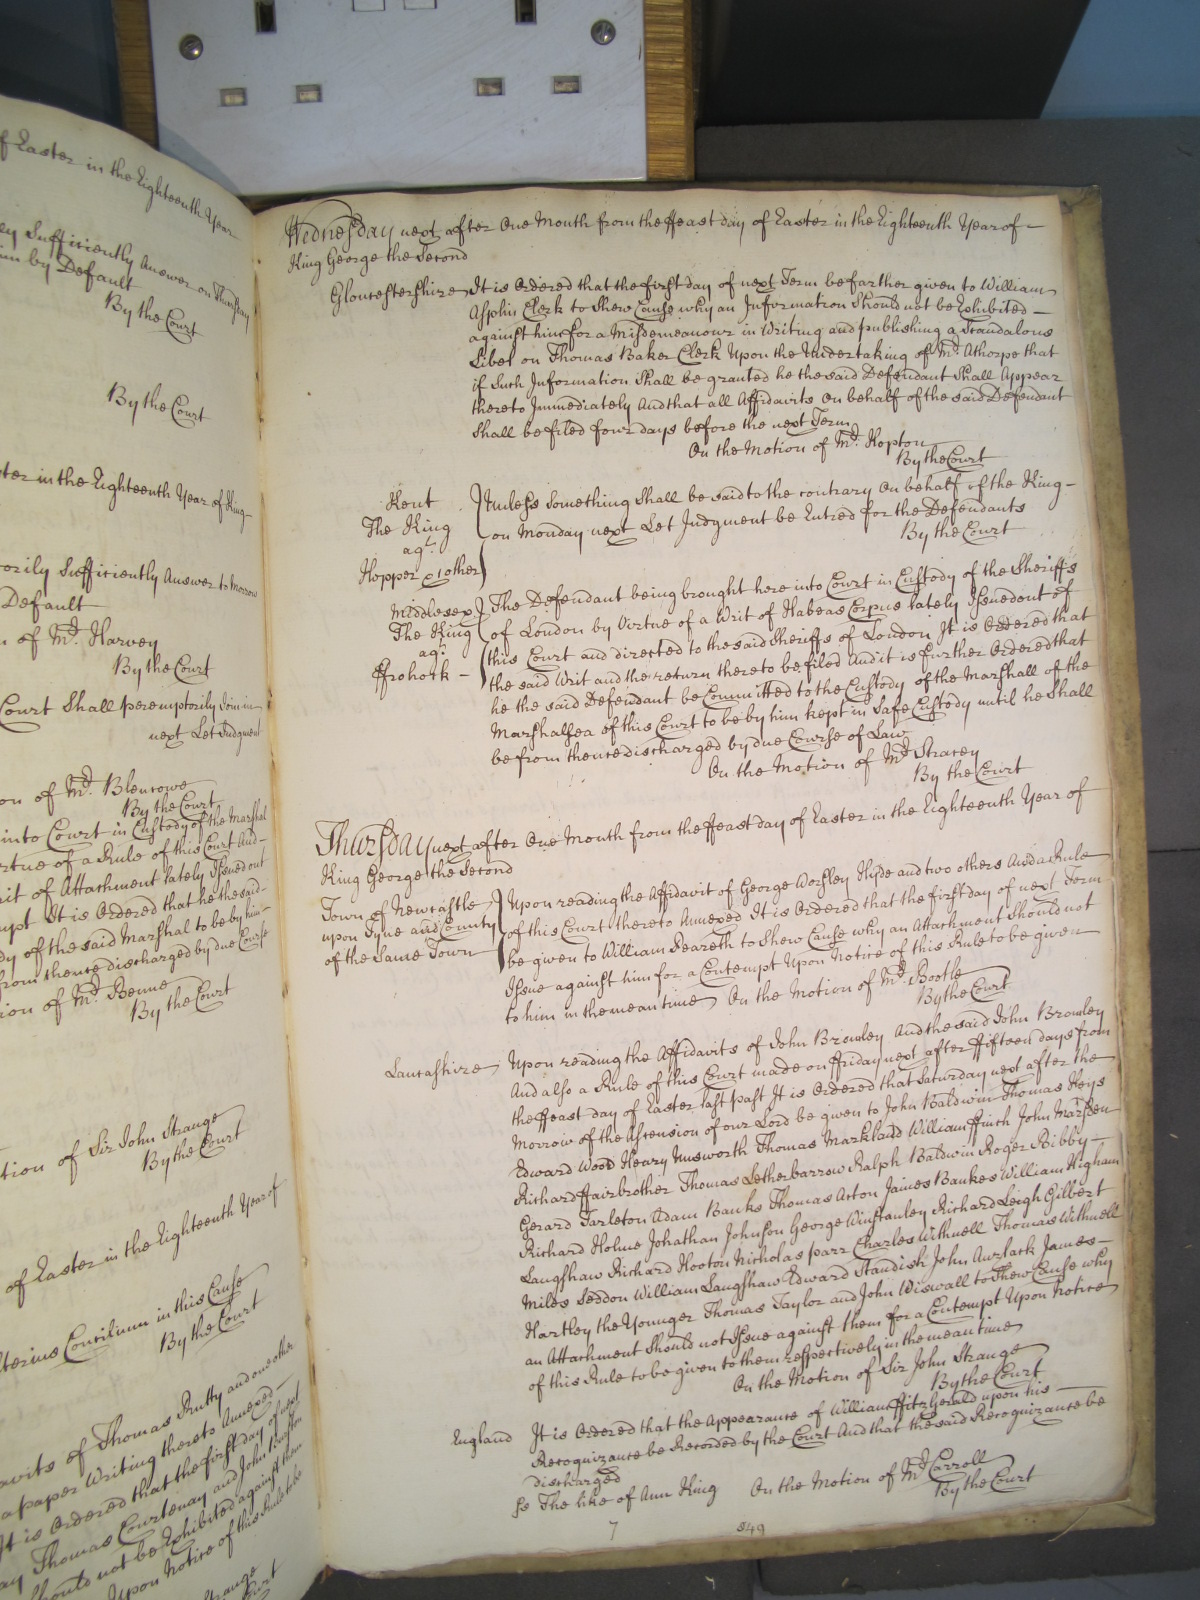 of Easter in the Eighteenth Year
Sufficiently Answer on Thursday
by Default
By the Court
By the Court
in the Eighteenth Year of King
Sufficiently Answer to Morrow
Default
of Mr. Harvey
By the Court
Court Shall peremptorily Join in
next Let Judgment
on of Mr. Blencowe
By the Court
into Court in Custody of the Marshal
of a Rule of this Court And
of Attachment lately Issued out
It is Ordered that he the said
of the said Marshal to be by him
from thence discharged by due Course
of Mr. Benne
By the Court
of Sir John Strange
By the Court
of Easter in the Eighteenth Year of
Concilium in this Cause
By the Court
of Thomas Rutty and one other
a paper Writing thereto Annexed
It is Ordered that the first day of next
Thomas Courtenay and John
Should not be Exhibited against them
Upon Notice of this Rule to be
Strange
Court
Wednesday next after One Month from the ffeast day of Easter in the Eighteenth Year of
King George the Second
Gloucestershire It is Ordered that the first day of next Term be farther given to William
Asplin Clerk to Shew Cause why an Information Should not be Exhibited
against him for a Misdemeanour in Writing and publishing a Scandalous
Libel on Thomas Baker Clerk Upon the Undertaking of Mr. Athorpe that
if Such Information Shall be granted he the said Defendant Shall Appear
thereto Immediately And that all Affidavits On behalf of the said Defendant
Shall be filed four days before the next Term
On the Motion of Mr. Hopton
By the Court
Kent
The King
agt.
Hopper & other
Unless Something Shall be said to the contrary On behalf of the King
on Monday next Let Judgment be Entred for the Defendants
By the Court
Middlesex
The King
agt.
ffrohock
The Defendant being brought here into Court in Custody of the Sheriffs
of London by Virtue of a Writ of Habeas Corpus lately Issued out of
this Court and directed to the said Sheriffs of London It is Ordered that
the said Writ and the return thereto be filed And it is further Ordered that
he the said Defendant be Committed to the Custody of the Marshall of the
Marshalsea of this Court to be by him kept in Safe Custody until he Shall
be from thence discharged by due Course of Law
On the Motion of Mr. Stracey
By the Court
Thursday next after One Month from the ffeast day of Easter in the Eighteenth Year of
King George the Second
Town of Newcastle
upon Tyne and County
of the Same Town
Upon reading the Affidavit of George Worsley Hyde and two others And a Rule
of this Court thereto Annexed It is Ordered that the first day of next Term
be given to William Peareth to Shew Cause why an Attachment Should not
Issue against him for a Contempt Upon Notice of this Rule to be given
to him in the mean time On the Motion of Mr. Bootle
By the Court
Lancashire Upon reading the Affidavits of John Bromley And the said John Bromley
And also a Rule of this Court made on ffriday next after ffifteen days from
the ffeast day of Easter last past It is Ordered that Saturday next after the
Morrow of the Ascension of our Lord be given to John Baldwin Thomas Keys
Edward Wood Henry Unsworth Thomas Markland William ffinch John Marsden
Richard ffairbrother Thomas Letherbarrow Ralph Baldwin Roger Bibby
Gerard Tarleton Adam Banks Thomas Acton James Bankes William Higham
Richard Holme Jonathan Johnson George Winstanley Richard Leigh Gilbert
Langshaw Richard Hooton Nicholas parr Charles Withnell Thomas Withnell
Miles Seddon William Langshaw Edward Standish John James
Hartley the Younger Thomas Taylor and John Wiswall to Shew Cause why
an Attachment Should not Issue against them for a Contempt Upon Notice
of this Rule to be given to them respectively in the mean time
On the Motion of Sir John Strange
By the Court
England It is Ordered that the Appearance of William ffitzGerald upon his
Recognizance be Recorded by the Court And that the said Recognizance be
discharged
The like of Ann King On the Motion of Mr. Carroll
By the Court
7 849